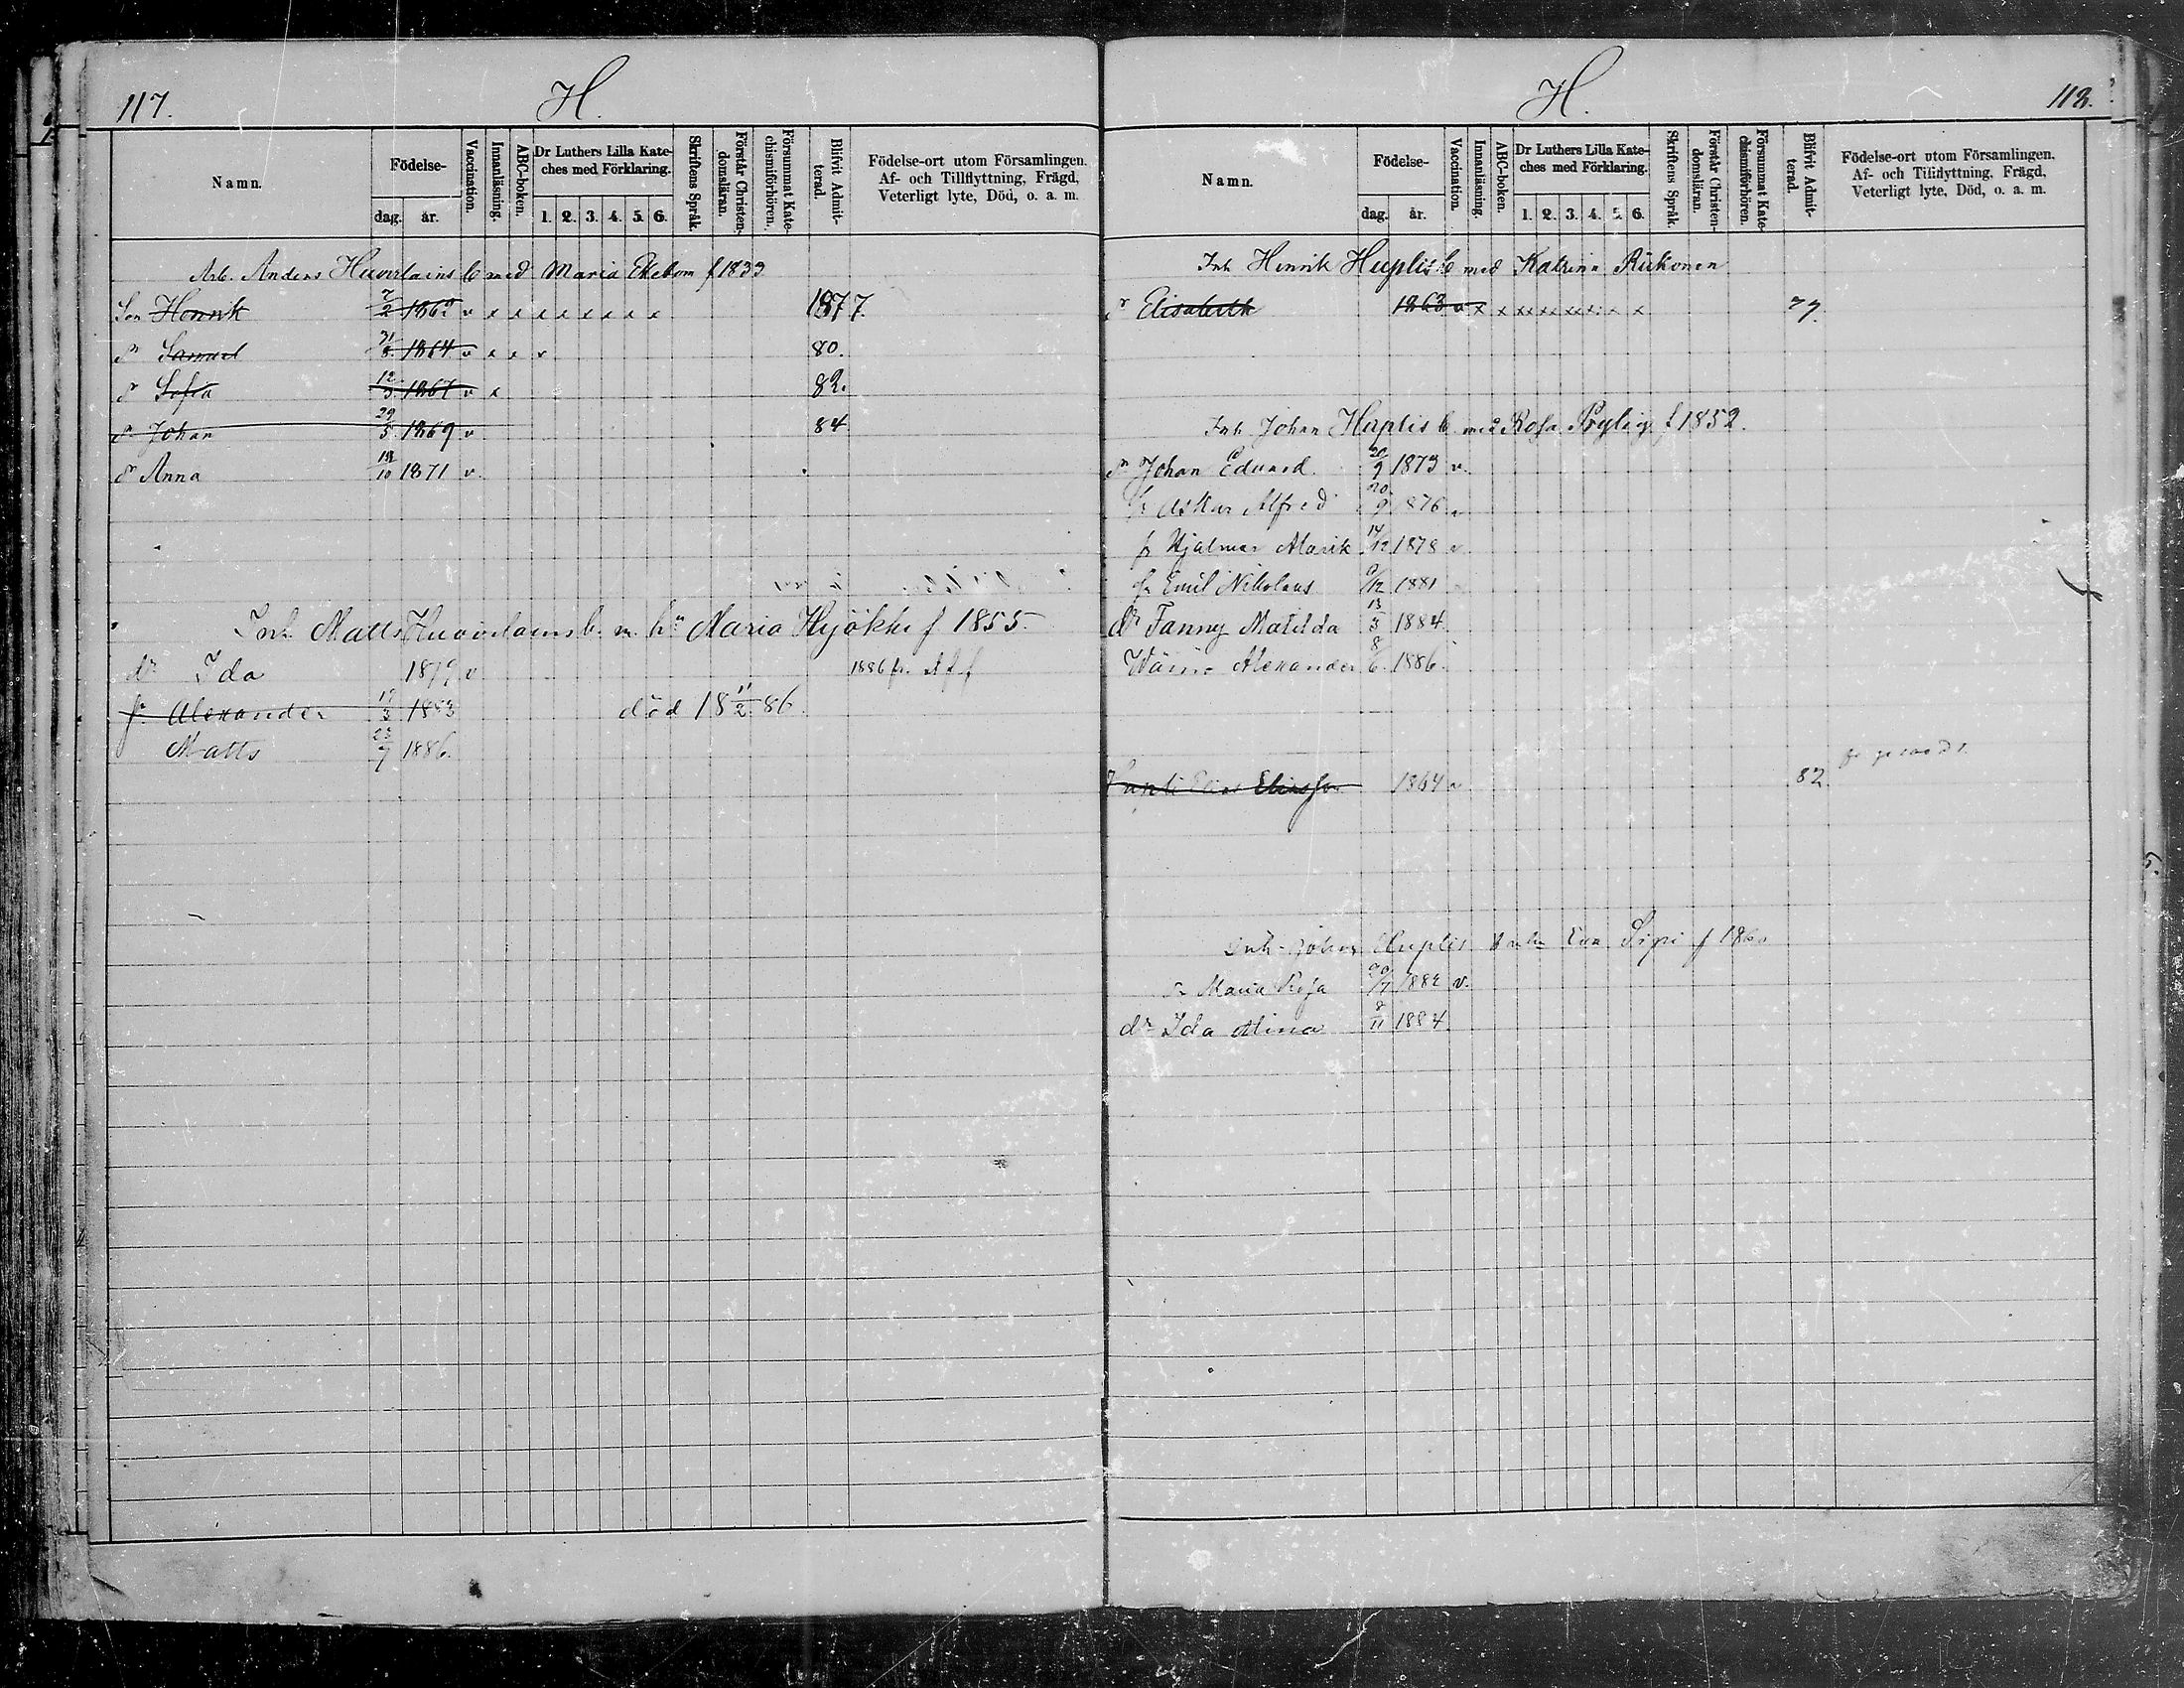 117.
H.
Namn.
Födelse-
dag. år.
Vaccination.
Innanläsning.
ABC-boken.
Dr Luthers Lilla Kate-
ches med Förklaring.
1. 2. 3. 4. 5. 6.
Skriftens Språk.
Förstår Christen-
domsläran.
Försummat Kate-
chismiförhören.
Blifvit Admit-
terad.
Födelse-ort utom Församlingen.
Af- och Tillflyttning, Frägd,
Veterligt lyte, Död, o. a. m.
Arb. Anders Huovilains b med Maria Ekebom f 1833
Son Henrik 7/2 1862 v x x x x x x x x 1877.
Sn Samuel 31/8 1864 v x x v 80.
dr Sofia 12/3 1867 v x 82.
Sn Johan 29/5 1869 v 84
dr Anna 1871 v.
Inh. Matts Huovilains b. m. hu Maria Hyökki f 1855
dr Ida 1879 v 1886 fr.
sn Alexander 19/3 1883 död 18 11/2 86.
Matts 23/7 1886.
H.
118.
Namn.
Födelse-
dag. år.
Vaccination.
Innanläsning.
ABC-boken.
Dr Luthers Lilla Kate-
ches med Förklaring.
1. 2. 3. 4. 5. 6.
Skriftens Språk.
Förstår Christen-
domsläran.
Försummat Kate-
chismiförhören.
Blifvit Admit-
terad.
Födelse-ort utom Församlingen.
Af- och Tillflyttning, Frägd,
Veterligt lyte, Död, o. a. m.
Inh Henrik Huplis b med Katrina Riikonen
dr Elisabeth 1863 v x x x x x x x x x 77.
Inh Johan Huplis b med Rosa f 1852.
Sn Johan Edvard 20/9 1873 v.
sn Oskar Alfred 20/9 876 v
sn Hjalmar 14/12 1878 v.
sn Emil Nikolaus 9/12 1881
dr Fanny Matilda 13/3 1884.
Wäinö Alexander 8/6. 1886.
Elias Eliasson 1864 v 82
Inh. Johan Huplis b m hu Eva Sipi f 1860
dr Maria Rosa 1882 v.
dr Ida Alina 8/11 1884